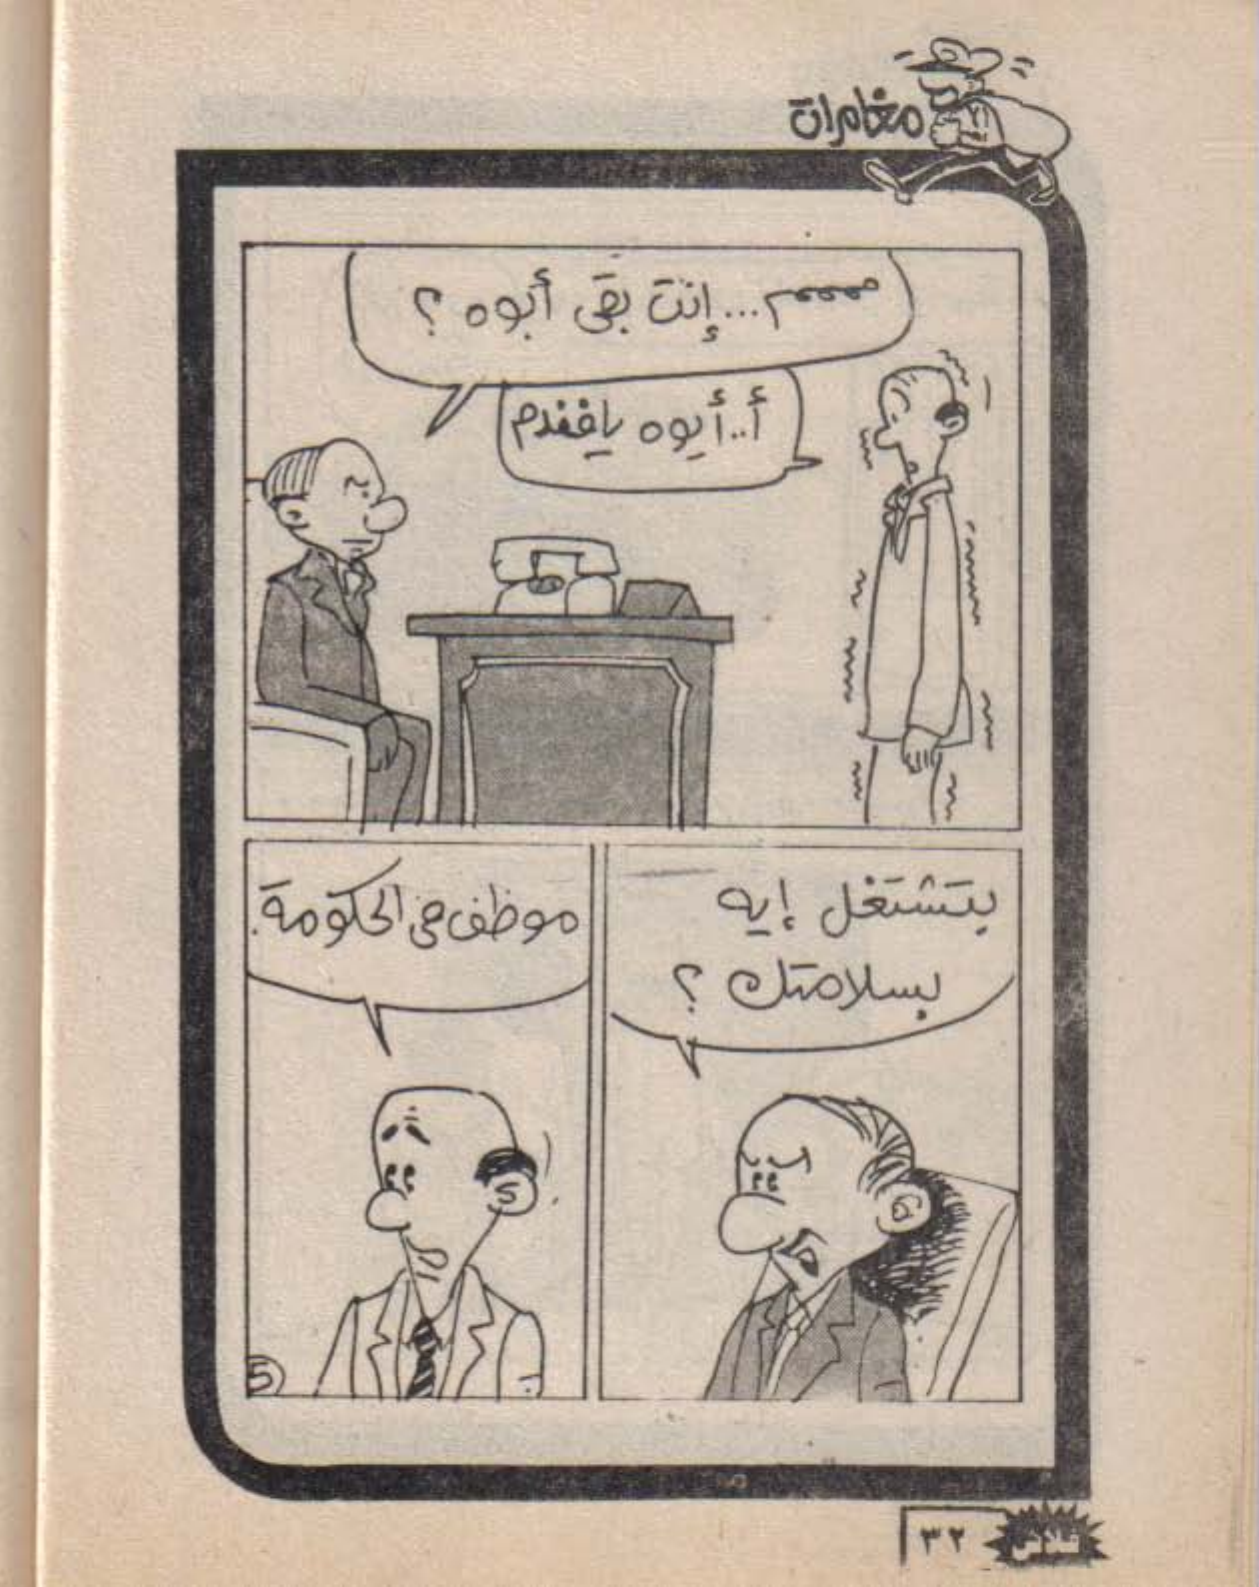 مغامرات
ممممم...إنْتَ بَقَى أبُوه ؟
أ..أيوه يافندم
بتشتغل إيه
بسلامتك ؟
موظف فى الحكومة.
5
فلاش
٣٢